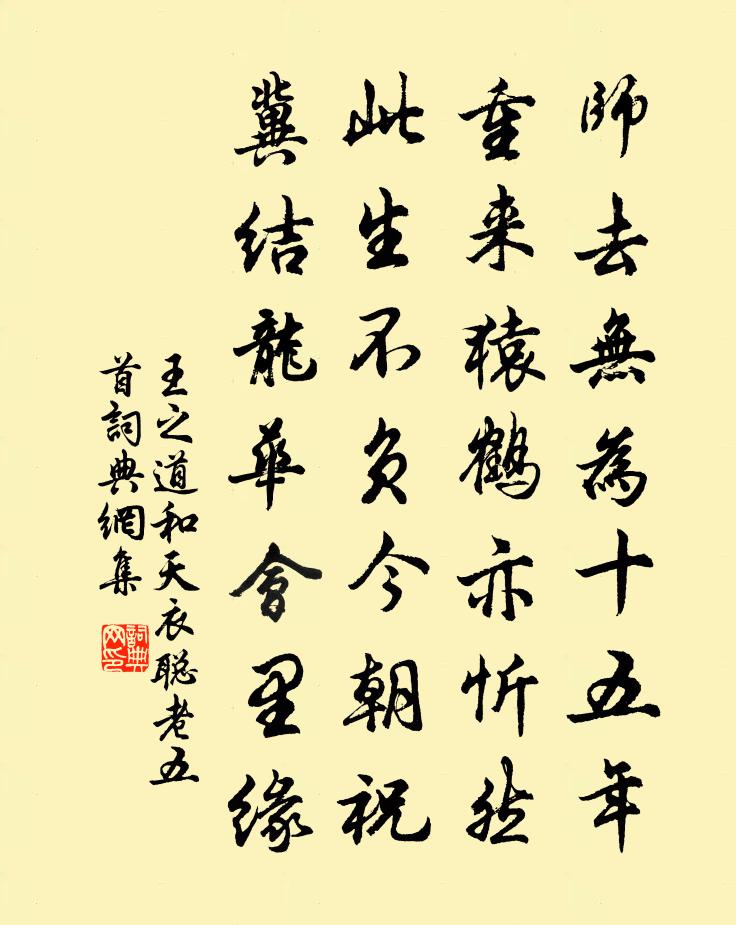 師去無為十五年
重来猿鶴亦忻然
此生不負今朝祝
冀結龍華會里緣
王之道和天衣聪老五
首詞典網集
詞典
网印